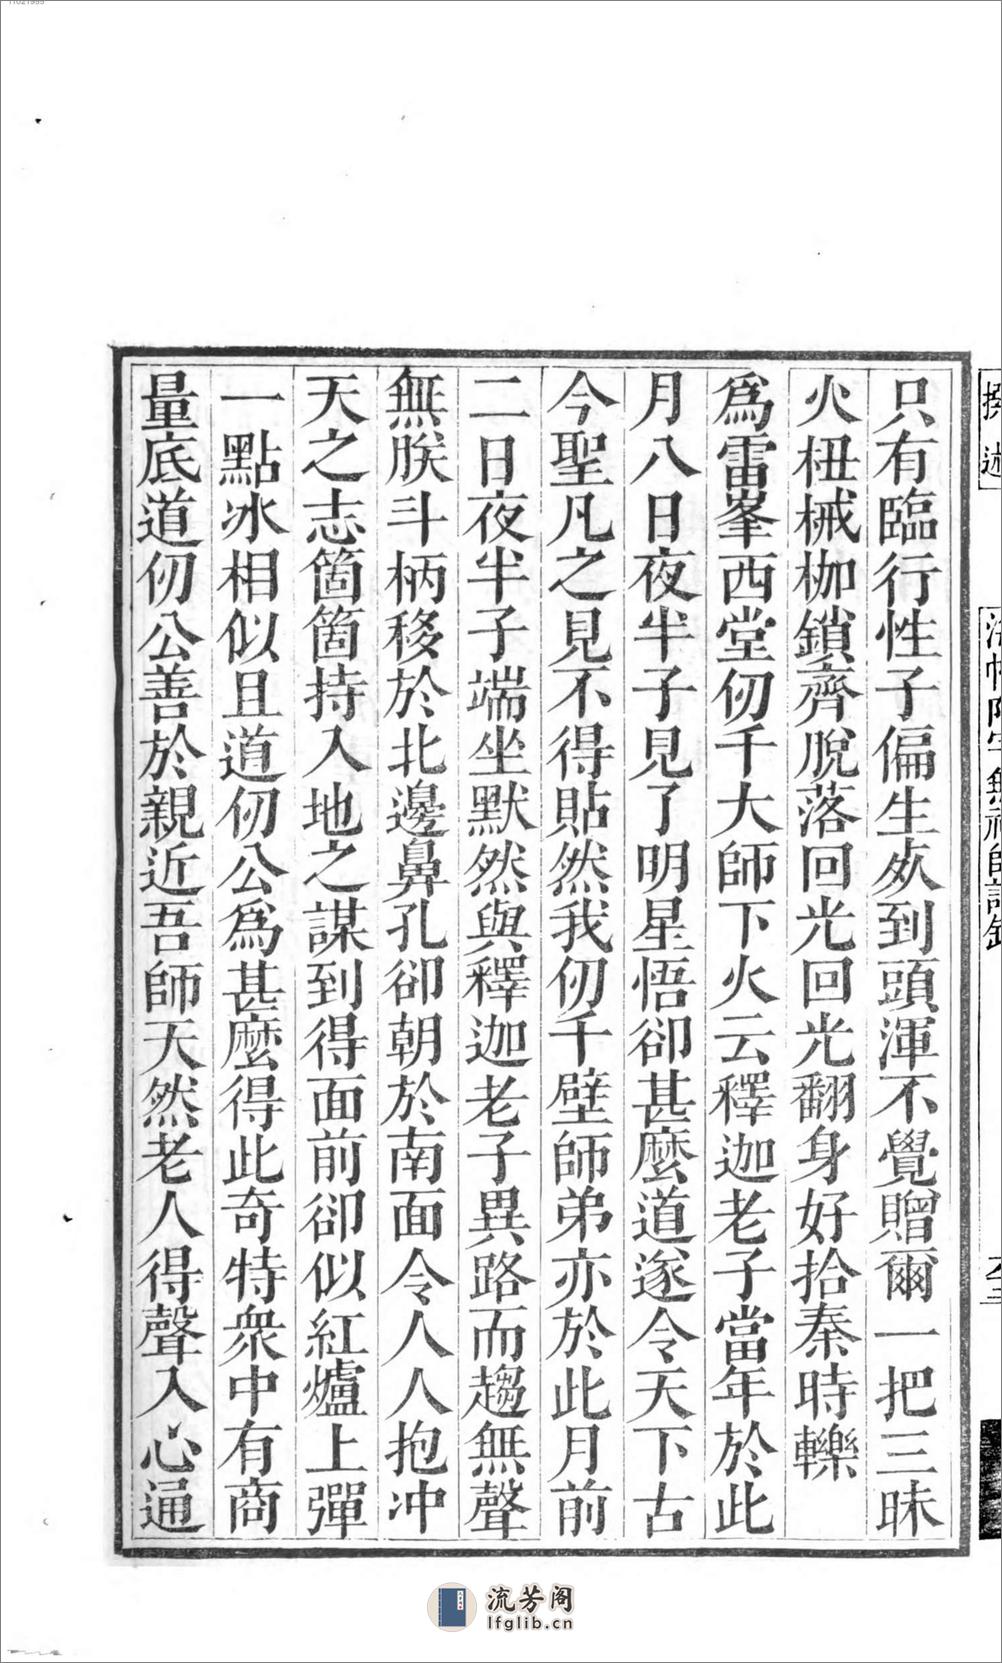 只有臨行性子偏生𠫵到頭渾不覺贈爾一把三昧
火杻械枷鎖齊脫落回光回光翻身好拾秦時轢
爲雷峯西堂仞千大師下火云釋迦老子當年於此
月八日夜半子見了明星悟卻甚麼道遂令天下古
今聖凡之見不得貼然我仞千壁師弟亦於此月前
二日夜半子端坐默然與釋迦老子異路而趨無聲
無朕斗柄移於北邊鼻孔卻朝於南面令人人抱冲
天之志箇箇持入地之謀到得面前卻似紅爐上彈
一點冰相似且道仞公爲甚麼得此奇特衆中有商
量底道仞公善於親近吾師天然老人得聲入心通
流芳阁
lfglib.cn